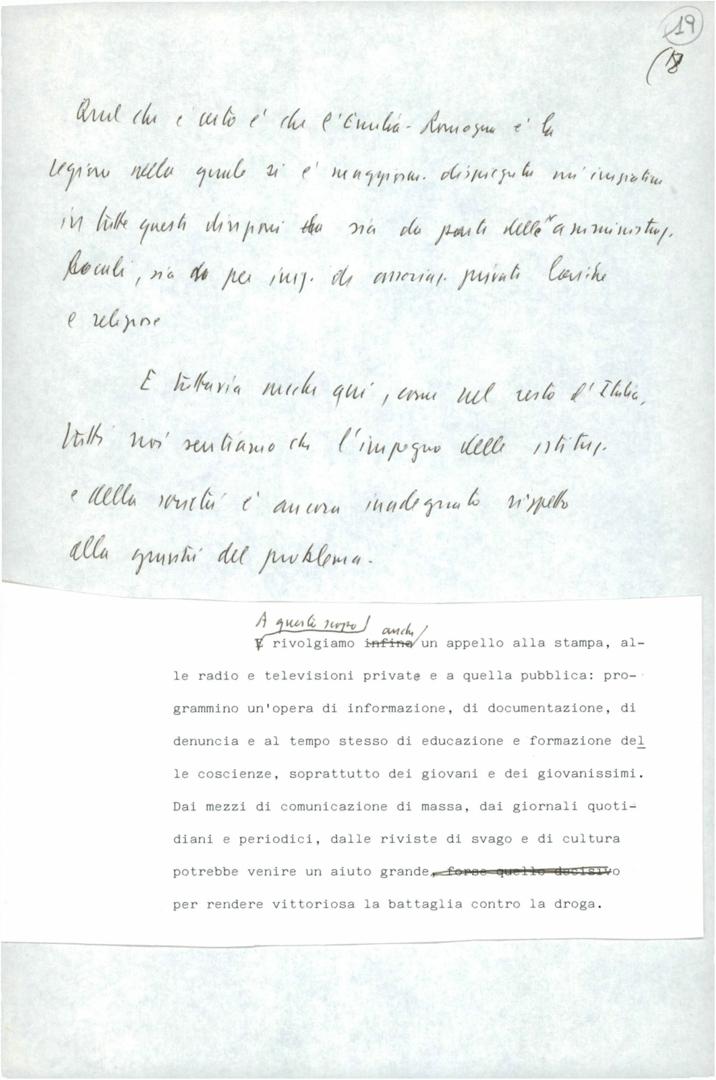 19
(18
Quel che è certo è che l'Emilia-Romagna è la
regione nella quale si è maggiorm. dispiegata un'iniziativa
in tutte queste direzioni sia da parte delle amministraz.
locali, sia per iniz. di associaz. private laiche
e religiose
E tuttavia anche qui, come nel resto d'Italia,
tutti noi sentiamo che l'impegno delle istituz.
e della società è ancora inadeguato rispetto
alla gravità del problema.
A questo scopo anche
E rivolgiamo infine un appello alla stampa, al-
le radio e televisioni private e a quella pubblica: pro-
grammino un'opera di informazione, di documentazione, di
denuncia e al tempo stesso di educazione e formazione del
le coscienze, soprattutto dei giovani e dei giovanissimi.
Dai mezzi di comunicazione di massa, dai giornali quoti-
diani e periodici, dalle riviste di svago e di cultura
potrebbe venire un aiuto grande, forse quello decisivo
per rendere vittoriosa la battaglia contro la droga.